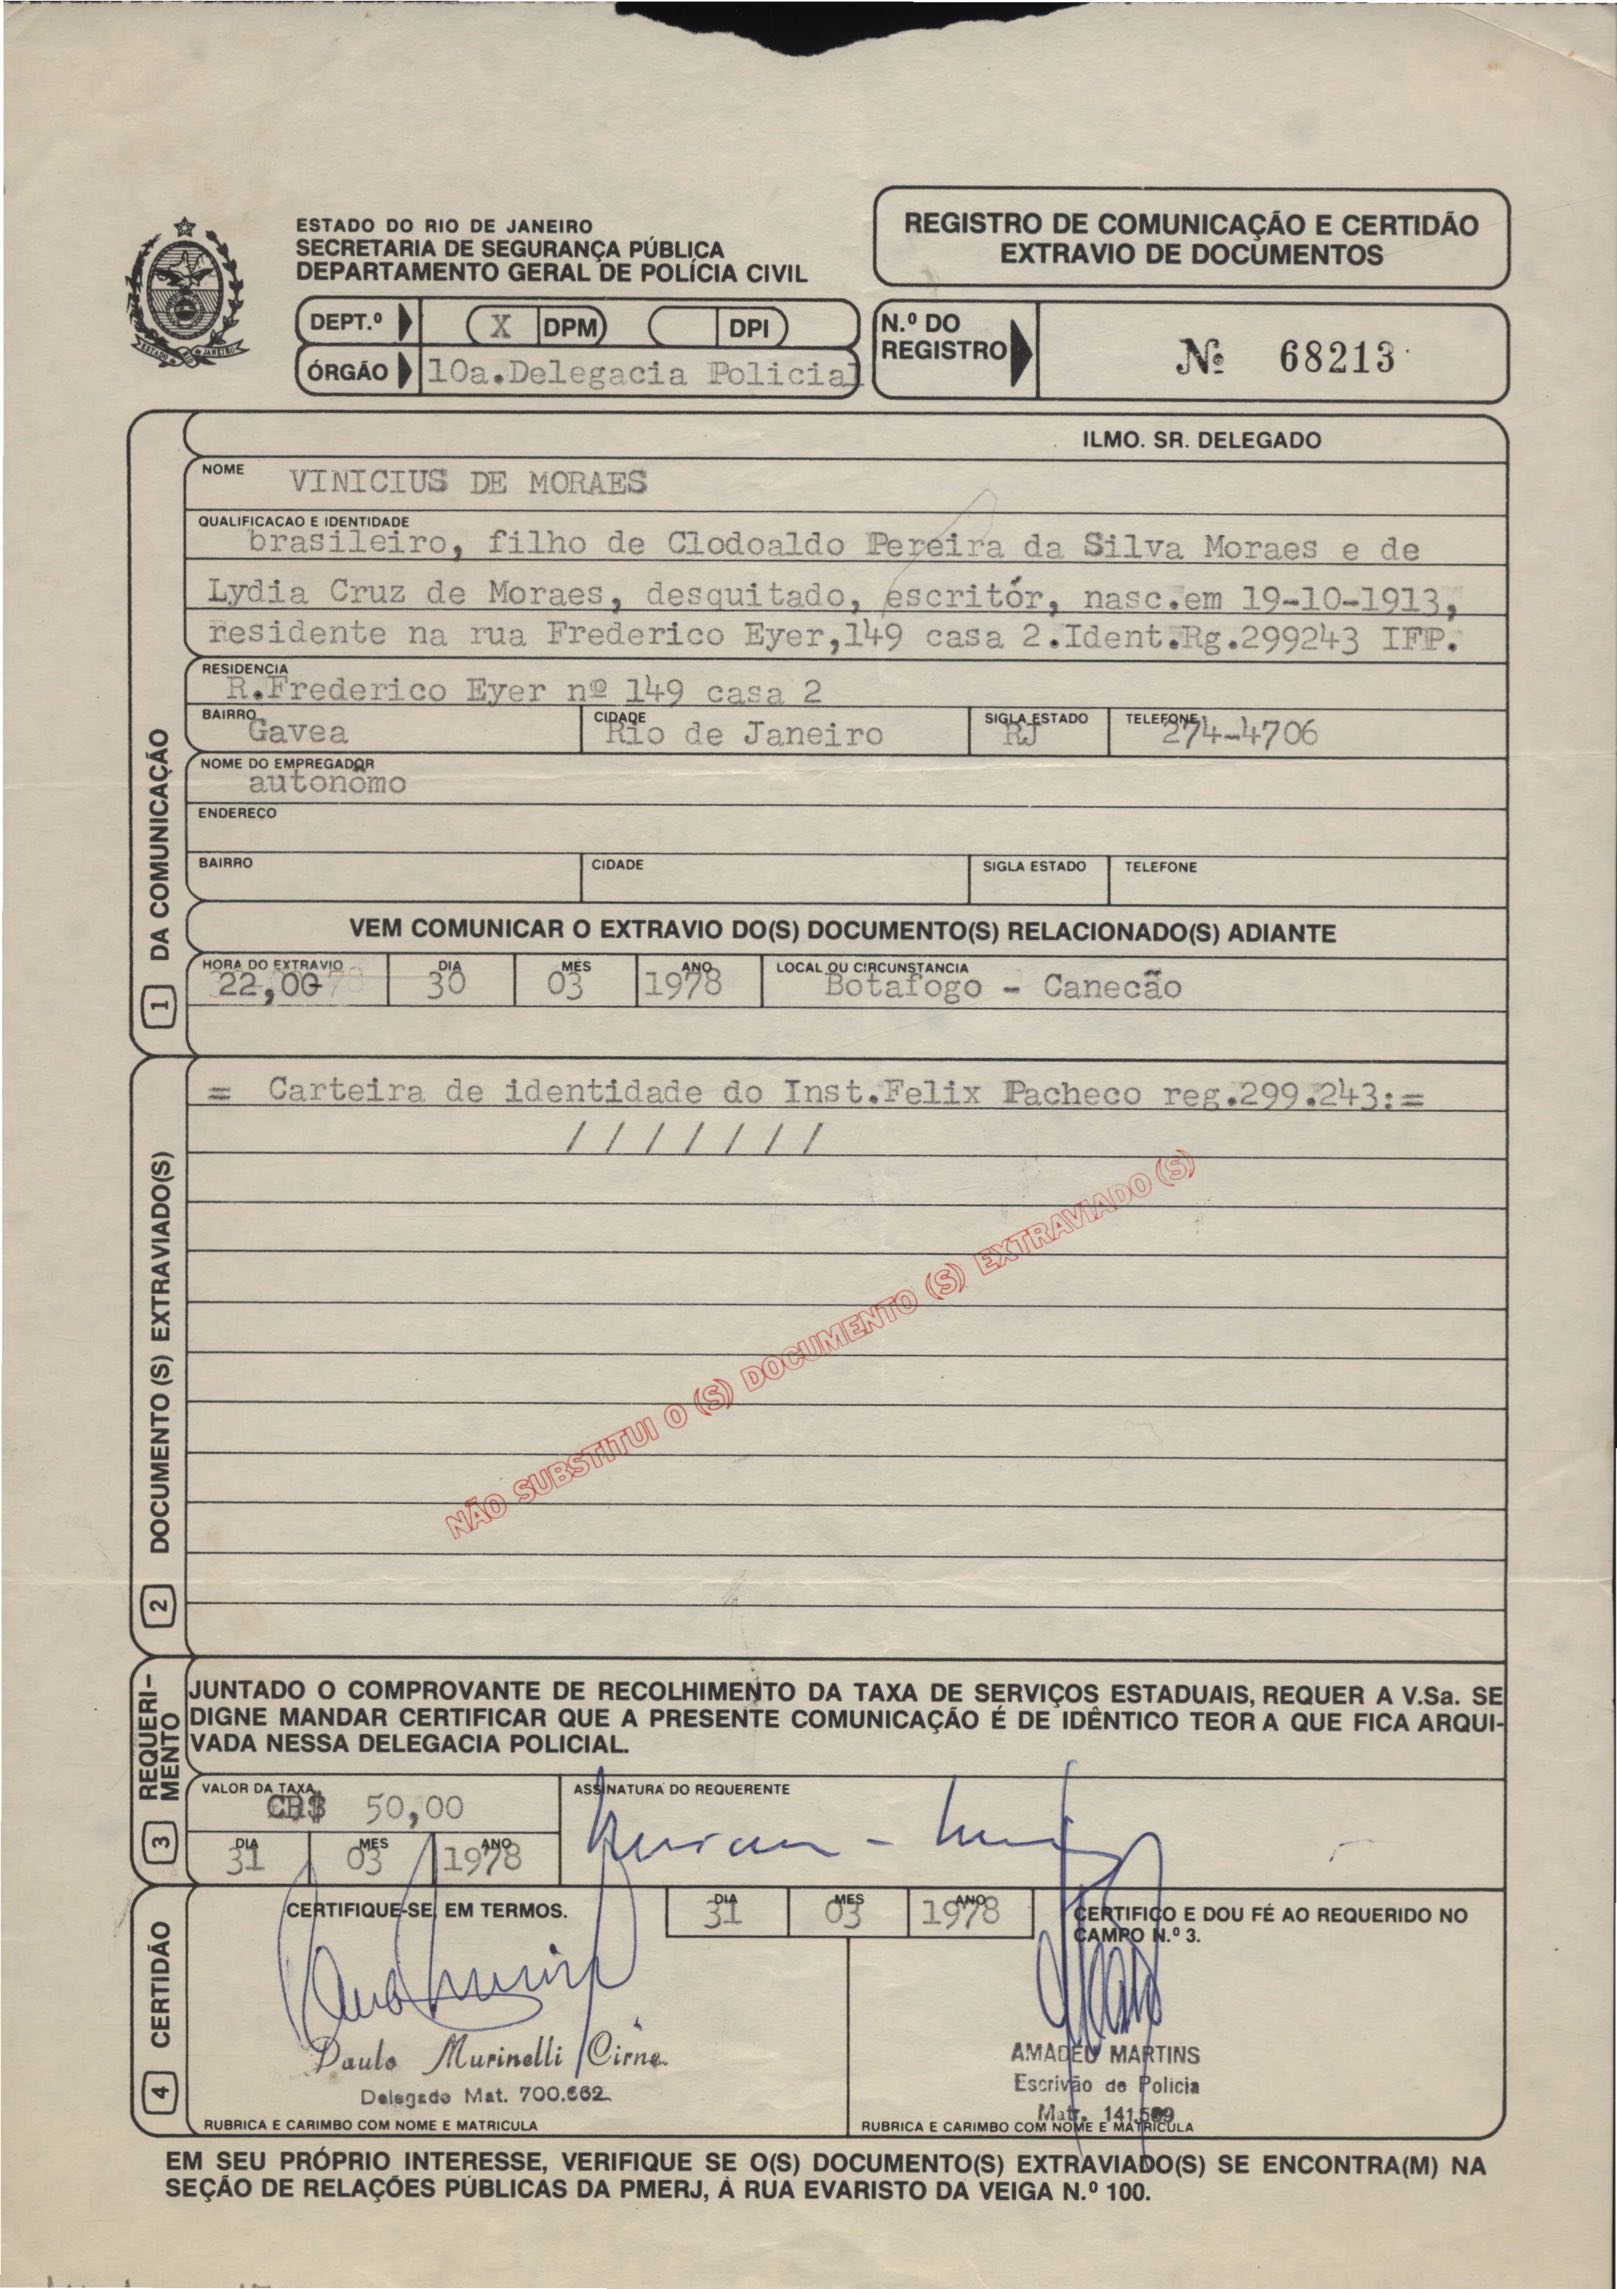 ESTADO DO RIO DE JANEIRO
SECRETARIA DE SEGURANÇA PÚBLICA
DEPARTAMENTO GERAL DE POLÍCIA CIVIL
REGISTRO DE COMUNICAÇÃO E CERTIDÃO
EXTRAVIO DE DOCUMENTOS
ESTADO DO RIO DE JANEIRO
DEPT.º X DPM DPI
ÓRGÃO 10a.Delegacia Policial
N.º DO
REGISTRO
Nº 68213
1 DA COMUNICAÇÃO
ILMO. SR. DELEGADO
NOME VINICIUS DE MORAES
QUALIFICACAO E IDENTIDADE
brasileiro, filho de Clodoaldo Pereira da Silva Moraes e de
Lydia Cruz de Moraes, desquitado, escritór, nasc.em 19-10-1913,
residente na rua Frederico Eyer,149 casa 2.Ident.Rg.299243 IFP.
RESIDENCIA
R.Frederico Eyer nº 149 casa 2
BAIRRO CIDADE SIGLA ESTADO TELEFONE
Gavea Rio de Janeiro RJ 274-4706
NOME DO EMPREGADOR
autonômo
ENDERECO
BAIRRO CIDADE SIGLA ESTADO TELEFONE
VEM COMUNICAR O EXTRAVIO DO(S) DOCUMENTO(S) RELACIONADO(S) ADIANTE
HORA DO EXTRAVIO DIA MÊS ANO LOCAL OU CIRCUNSTANCIA
22,00 30 03 1978 Botafogo - Canecão
2 DOCUMENTO (S) EXTRAVIADO(S)
= Carteira de identidade do Inst.Felix Pacheco reg.299.243:=
/ / / / / / /
NÃO SUBSTITUI O (S) DOCUMENTO (S) EXTRAVIADO (S)
3 REQUERI-
MENTO
JUNTADO O COMPROVANTE DE RECOLHIMENTO DA TAXA DE SERVIÇOS ESTADUAIS, REQUER A V.Sa. SE
DIGNE MANDAR CERTIFICAR QUE A PRESENTE COMUNICAÇÃO É DE IDÊNTICO TEOR A QUE FICA ARQUI-
VADA NESSA DELEGACIA POLICIAL.
VALOR DA TAXA ASSINATURA DO REQUERENTE
CR$ 50,00
DIA MÊS ANO
31 03 1978
4 CERTIDÃO
CERTIFIQUE-SE, EM TERMOS.
DIA MÊS ANO
31 03 1978
CERTIFICO E DOU FÉ AO REQUERIDO NO
CAMPO N.º 3.
Paulo Murinelli Cirne
Delegado Mat. 700.662
RUBRICA E CARIMBO COM NOME E MATRICULA
AMADEU MARTINS
Escrivão de Policia
Matr. 141.509
RUBRICA E CARIMBO COM NOME E MATRICULA
EM SEU PRÓPRIO INTERESSE, VERIFIQUE SE O(S) DOCUMENTO(S) EXTRAVIADO(S) SE ENCONTRA(M) NA
SEÇÃO DE RELAÇÕES PÚBLICAS DA PMERJ, À RUA EVARISTO DA VEIGA N.º 100.